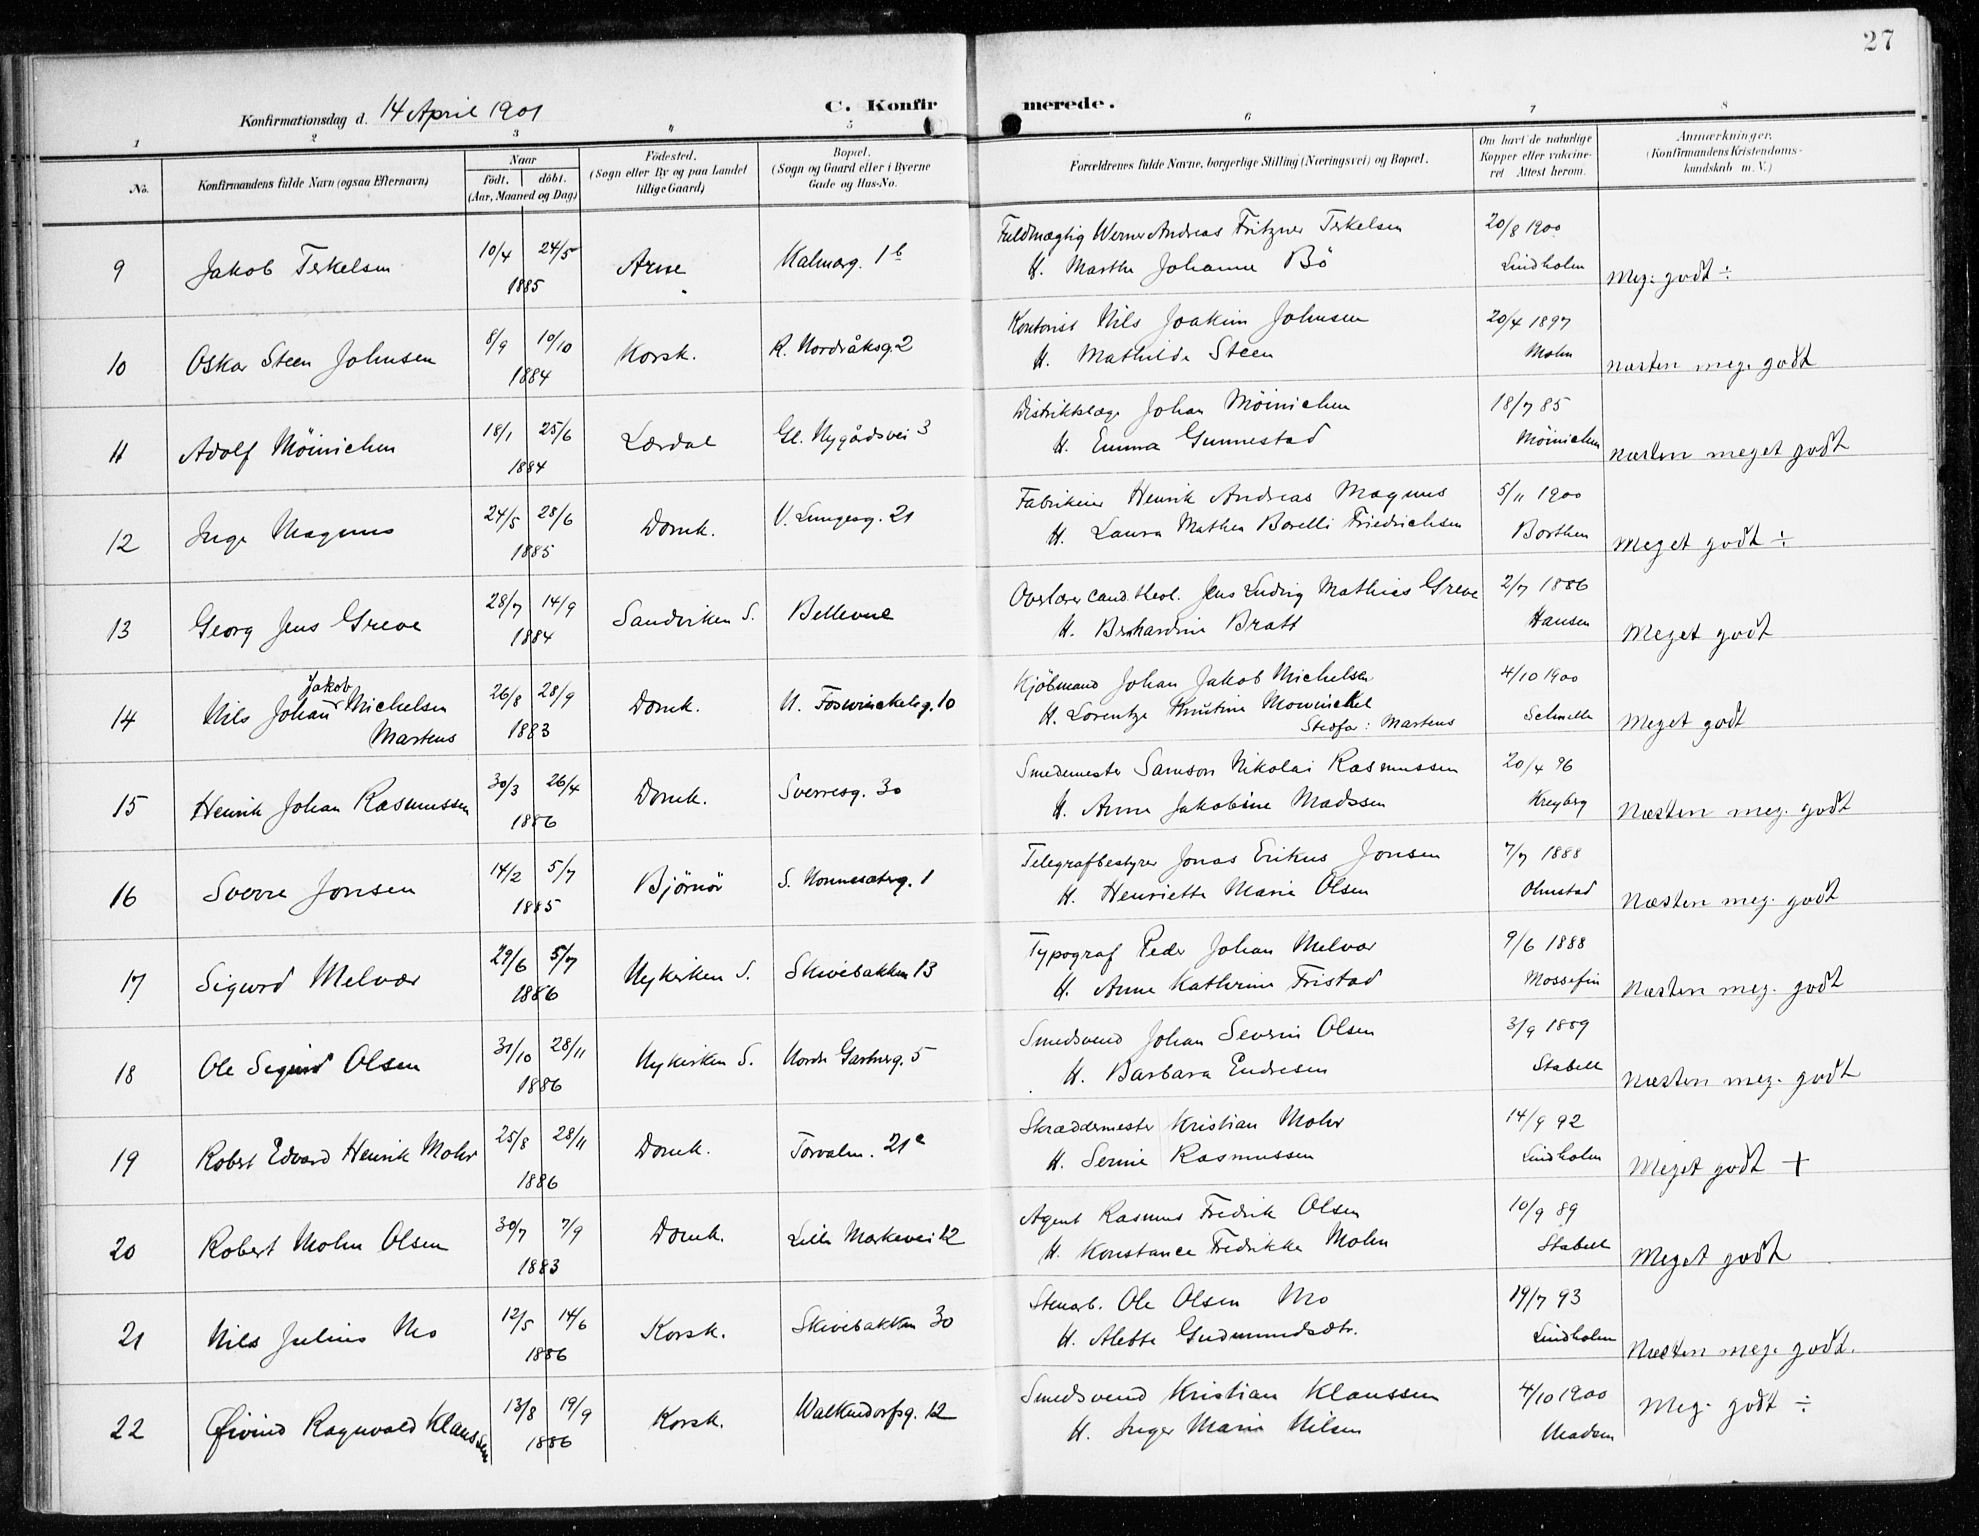 27
Konfirmationsdag d. 14 April 1901
C. Konfirmerede.
1 2 3 4 5 6 7 8
No.
Konfirmandens fulde Navn (ogsaa Efternavn)
Naar
født. døbt.
(Aar, Maaned og Dag)
Fødested.
(Sogn eller By og paa Landet
tillige Gaard)
Bopæl.
(Sogn og Gaard eller i Byerne
Gade og Hus-No.
Forældrenes fulde Navne, borgerlige Stilling (Næringsvei) og Bopæl.
Om havt de naturlige
Kopper eller vakcine-
ret Attest herom.
Anmærkninger.
(Konfirmandens Kristendoms-
kundskab m. V.)
9 Jakob Terkelsen 10/4 24/5 1885 Arne Kalmarg. 1b
Fuldmægtig Werner Andreas Fritzner Terkelsen 20/8 1900
H. Marthe Johanne Bö Lindholm Meg. godt ÷
10 Oskar Steen Johnsen 8/9 10/10 1884 Korsk. R. Nordråksg. 2
Kontorist Nils Joakim Johnsen 20/4 1897
H. Mathilde Steen Mohn næsten meg. godt
11 Adolf Möinichen 18/1 25/6 1884 Lærdal Gl. Nygådsvei 3
Distriktslæge Johan Möinichen 18/7 85
H. Emma Gunnestad Möinichen næsten meget godt
12 Inge Magnus 24/5 28/6 1885 Domk. V. Lungesg. 21
Fabrikeier Henrik Andreas Magnus 5/11 1900
H. Laura Mathea Borelli Friedrichsen Borthen Meget godt ÷
13 Georg Jens Greve 28/7 14/9 1884 Sandviken S. Bellevue
Overlærer cand. theol. Jens Ludvig Mathias Greve 2/7 1886
H. Berhardine Bratt Hansen Meget godt
14 Nils Johan Jakob Michelsen Martens 26/8 28/9 1883 Domk. N. Foswinckelsg. 10
Kjöbmand Johan Jakob Michelsen 4/10 1900
H. Lorentze Kristine Mowinckel Schnelle Meget godt
Stedfar: Martens
15 Henrik Johan Rasmussen 30/3 26/4 1886 Domk. Sverresg. 30
Smedemester Samson Nikolai Rasmussen 20/4 96
H. Anne Jakobine Madssen Kreyberg Næsten meg. godt
16 Sverre Jonsen 14/2 5/7 1885 Björnör S. Nonnesæterg. 1
Telegrafbestyrer Jonas Erikus Jonsen 7/7 1888
H. Henriette Marie Olsen Olmstad Næsten meg. godt
17 Sigurd Melvær 29/6 5/7 1886 Nykirken S. Skivebakken 13
Typograf Peder Johan Melvær 9/6 1888
H. Anne Kathrine Fristad Mossefin Næsten meg. godt
18 Ole Sigurd Olsen 31/10 28/11 1886 Nykirken S. Nordre 5
Smedsvend Johan Severin Olsen 3/9 1889
H. Barbara Endresen Stabell Næsten meg. godt
19 Robert Edvard Henrik Mohr 25/8 28/11 1886 Domk. Torvalm. 21c
Skræddermester Kristian Mohr 14/9 92
H. Serine Rasmussen Lindholm Meget godt +
20 Robert Mohn Olsen 30/7 7/9 1883 Domk. Lille Markevei 12
Agent Rasmus Fredrik Olsen 10/9 89
H. Konstance Fredrikke Mohn Stabell Meget godt
21 Nils Julius Mo 12/5 14/6 1886 Korsk. Skivebakken 30
Stenarb. Ole Olsen Mo 19/7 93
H. Alette Gudmundsdtr. Lindholm Næsten meg. godt.
22 Øivind Ragnvald Klaussen 13/8 19/9 1886 Korsk. Walkendorfsg. 12
Smedsvend Kristian Klaussen 4/10 1900
H. Inger Marie Nilsen Madsen Meg. godt ÷